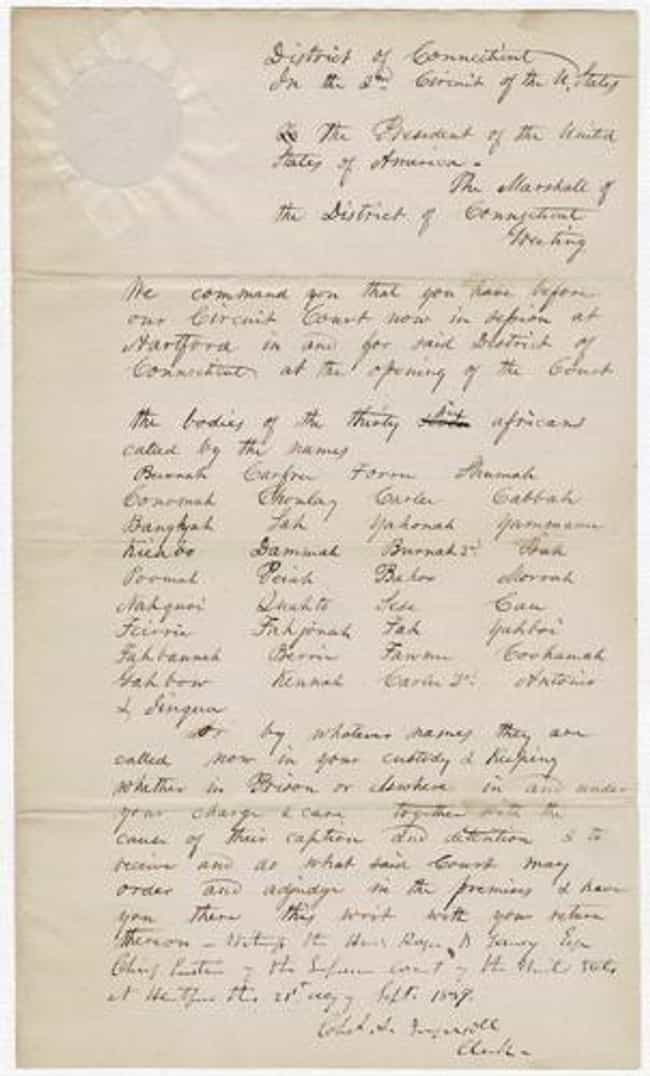 District of Connecticut
In the 2nd Circuit of the U. States
the President of the United
States of America.
The Marshall of
the District of Connecticut
Greeting
We command you that you have before
our Circuit Court now in session at
Hartford in and for said District of
Connecticut at the opening of the Court
the bodies of the thirty six africans
called by the names
Burnah Carfree Forrie Shumah
Conomah Choulay Carlee Cabbah
Bangyah Sah Yahonah Yammanee
Kienbo Dammah Burnah 2d
Poomah Peiah Bahoo Morrah
Nahquoi Quahto Sese Cau
Feirrie Fahjonah Fah Yahboi
Fahbannah Berrie Fawnee Cookamah
Gahbow Kennah Carlee 2d Antonio
& Singua
Or by whatever names they are
called now in your custody & keeping
whether in Prison or elsewhere in and under
your charge & care together with the
cause of their caption and detention & to
receive and do what said Court may
order and adjudge in the premises & have
you there this writ with your return
thereon - Witness the Hon. Roger B Taney Esqr
Chief Justice of the Supreme court of the United States
at Hartford this 21st day of Septr. 1839.
Ingersoll
Clerk